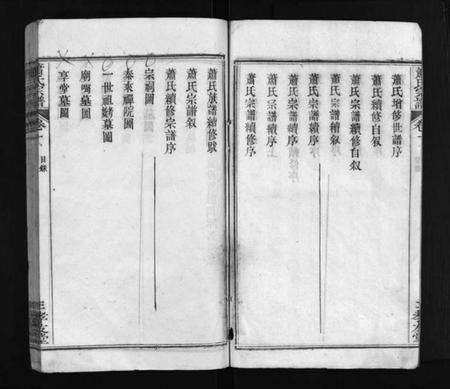 蕭氏增修世譜序
蕭氏續修自叙
蕭氏宗譜續修自叙
蕭氏宗譜續叙
蕭氏宗譜續序上
蕭氏宗譜續修序
蕭氏族譜續修跋
蕭氏宗譜叙
蕭氏續修宗譜序
宗祠圖
泰來禪院圖
一世祖墓圖
廟墓圖
享堂墓圖
蕭氏宗譜
卷一
目錄